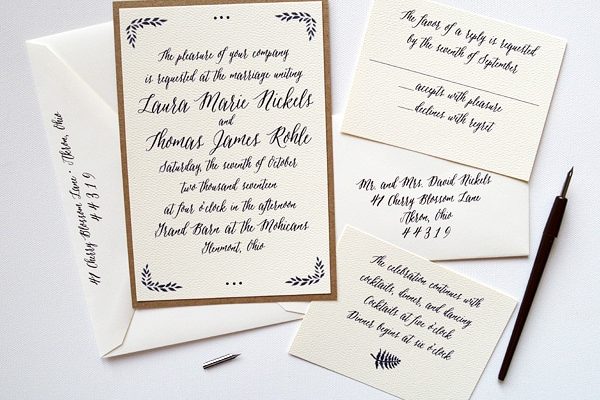 The pleasure of your company
is requested at the marriage uniting
Laura Marie Nickels
and
Thomas James Rohle
Saturday, the seventh of October
two thousand seventeen
at four o'clock in the afternoon
Grand Barn at the Mohicans
Glenmont, Ohio
41 Cherry Blossom Lane • Akron, Ohio
44319
The favor of a reply is requested
by the seventh of September
accepts with pleasure
declines with regret
Mr. and Mrs. David Nickels
41 Cherry Blossom Lane
Akron, Ohio
44319
The celebration continues with
cocktails, dinner, and dancing
Cocktails at five o'clock
Dinner begins at six o'clock